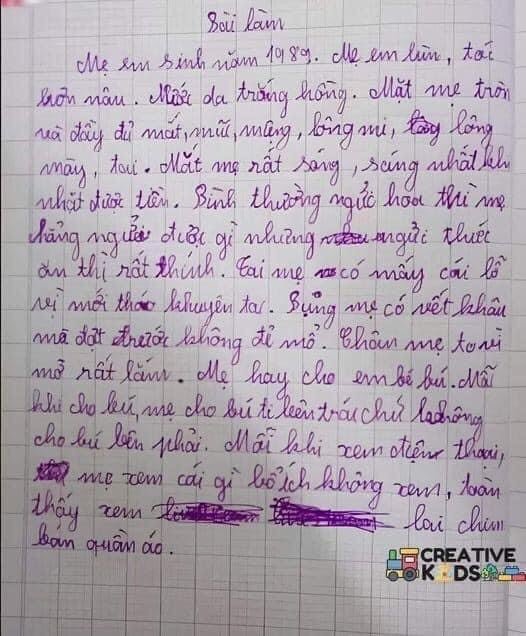 Bài làm
Mẹ em sinh năm 1989. Mẹ em lùn, tóc
hơn nâu. Nước da trắng hồng. Mặt mẹ tròn
và đầy đủ mắt, mũi, miệng, lông mi, lông
mày, tai. Mắt mẹ rất sáng, sáng nhất khi
nhặt được tiền. Bình thường ngửi hoa thì mẹ
chẳng ngửi được gì nhưng ngửi thức
ăn thì rất thính. Tai mẹ có mấy cái lỗ
vì mới tháo khuyên tai. Bụng mẹ có vết khâu
mà đợt trước không đẻ mổ. Chân mẹ to vì
mỡ rất lắm. Mẹ hay cho em bé bú. Mỗi
khi cho bú, mẹ cho bú ti bên trái chứ không
cho bú bên phải. Mỗi khi xem điện thoại,
mẹ xem cái gì bổ ích không xem, toàn
thấy xem lai chim
bán quần áo.
CREATIVE
KIDS